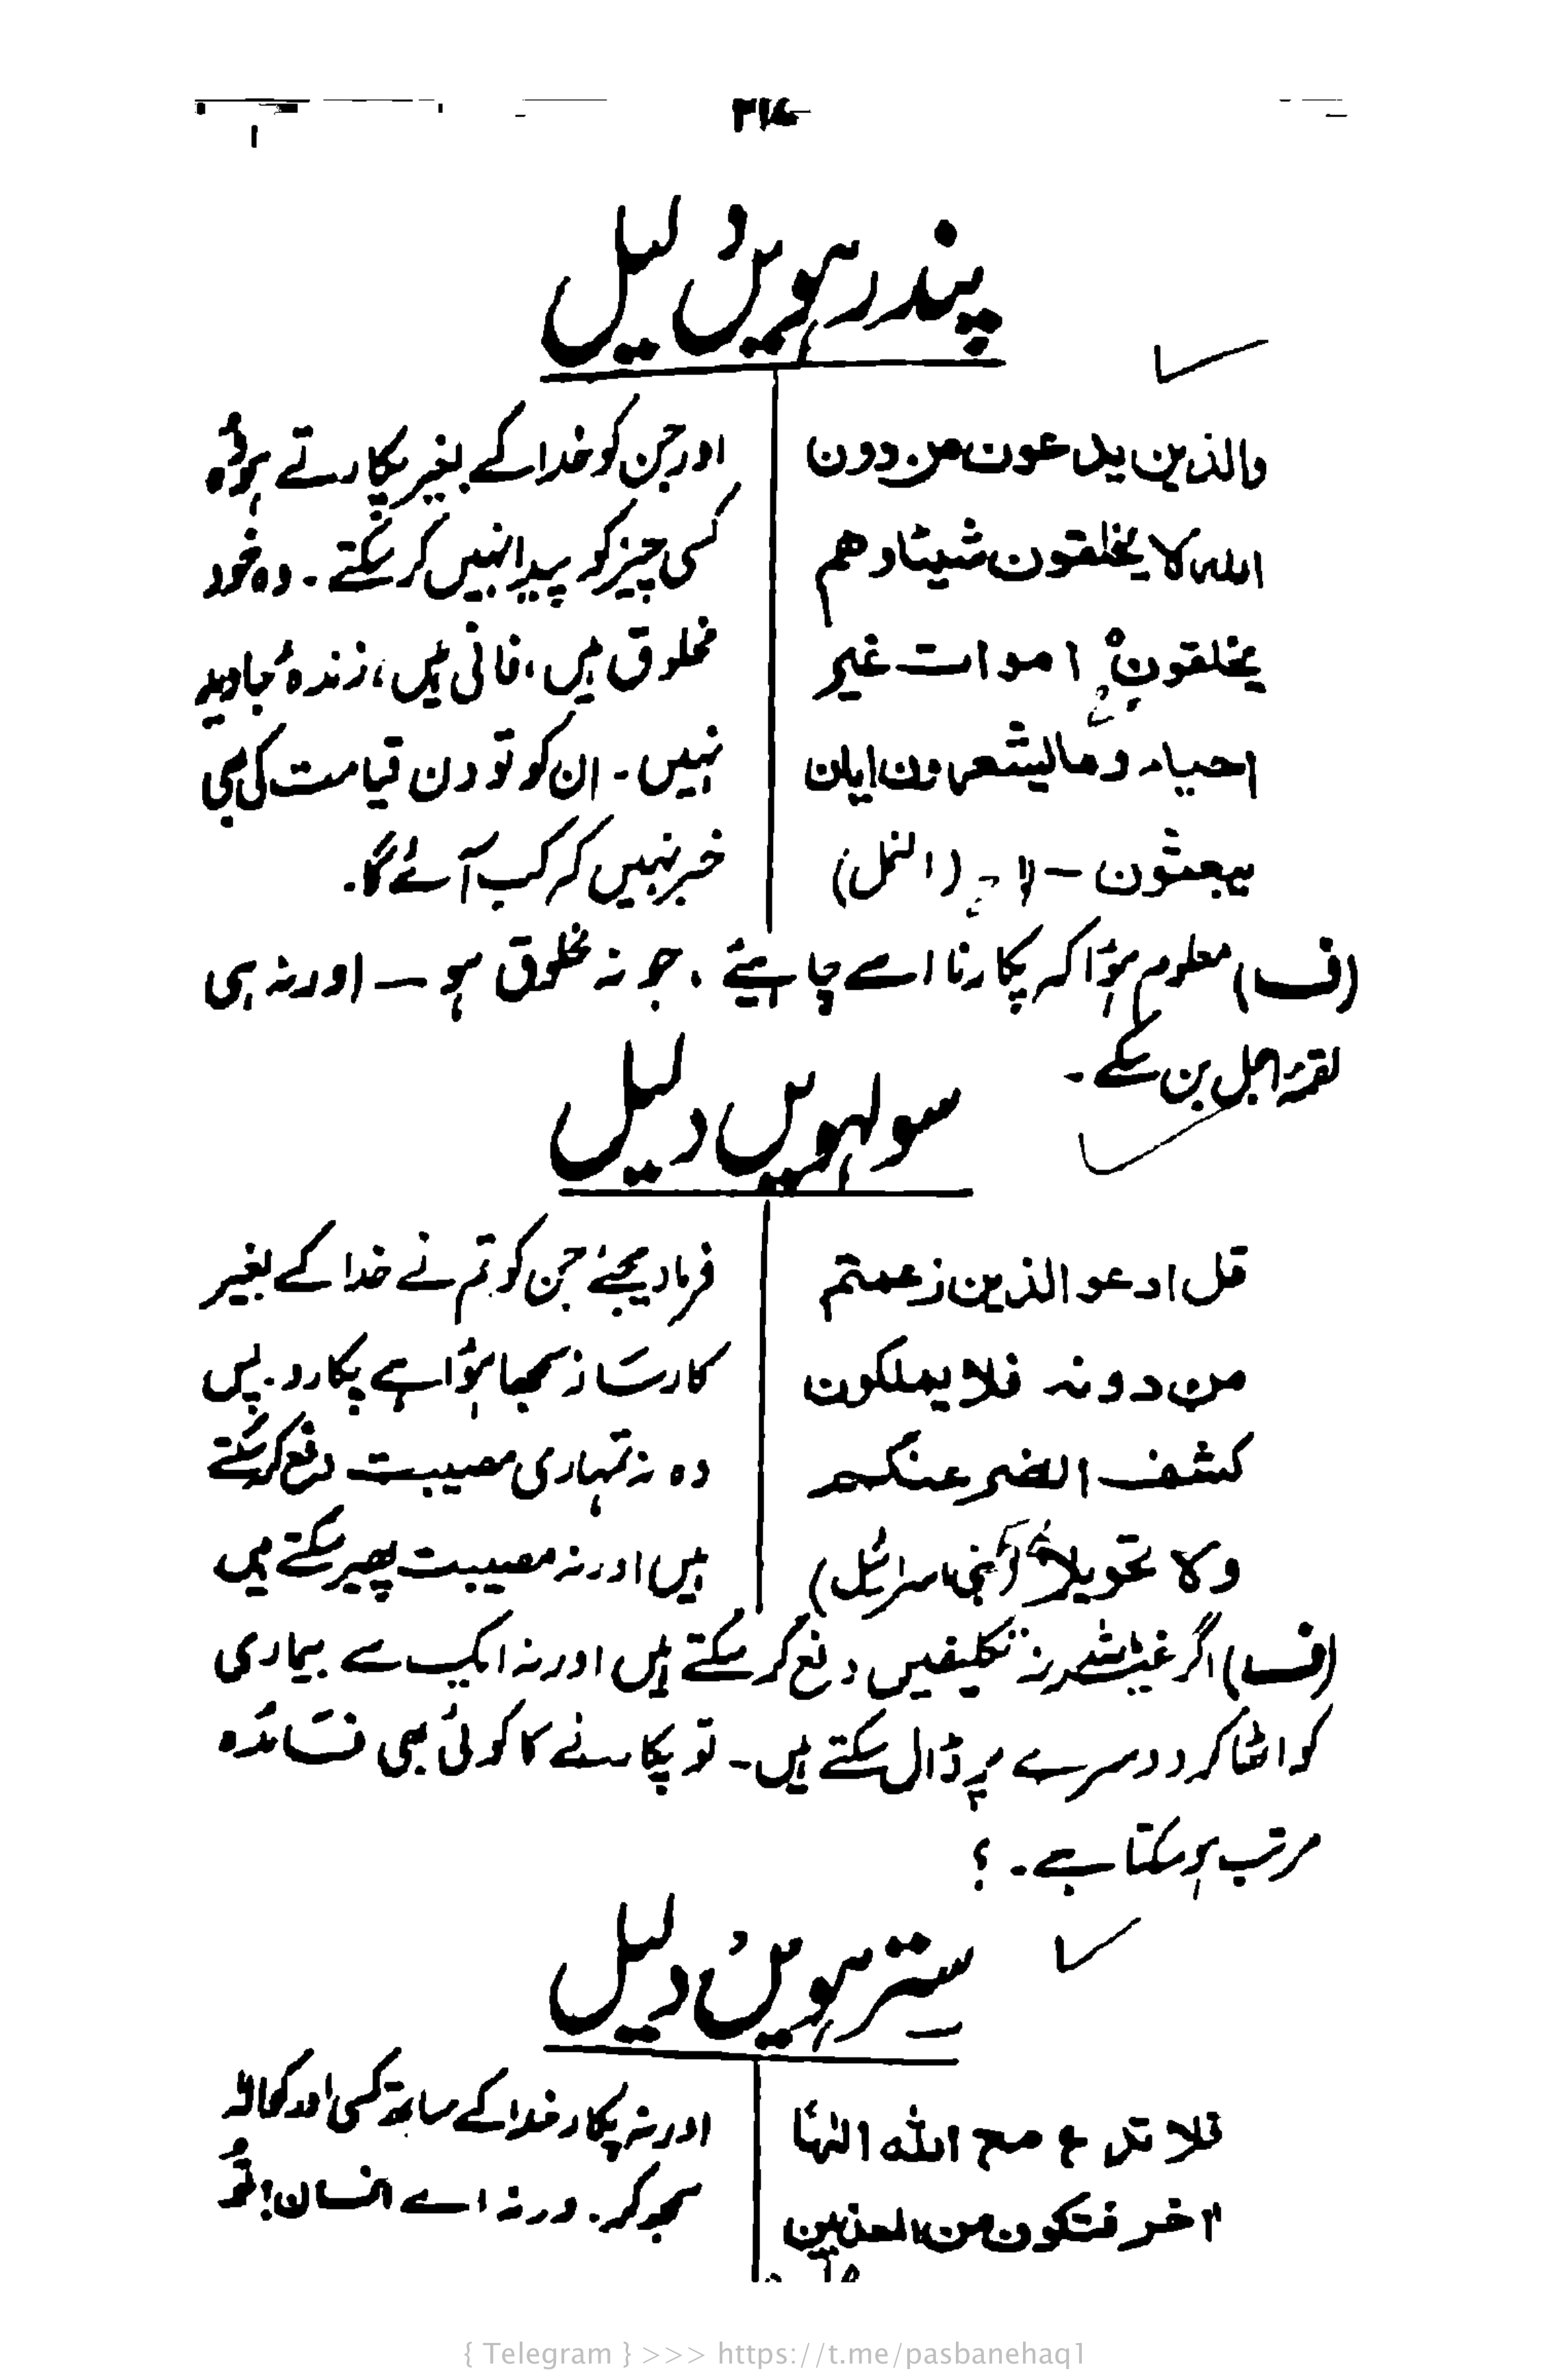 ۳۱۷
پندرہویں دلیل
والذین یدعون من دون
اللہ لا یخلقون شیئا وھم
یخلقون اموات غیر
احیاء وما یشعرون ایان
یبعثون - (النحل)
اور جن کو خدا کے بغیر پکارتے ہو وُہ
کسی چیز کو پیدا نہیں کر سکتے ۔ وہ خود
مخلوق ہیں، فانی ہیں، زندہ جاوید
نہیں ۔ ان کو تو دن قیامت کی بھی
خبر نہیں کہ کب آئے گا۔
(ف) معلوم ہوٗا کہ پکارنا اسے چاہیئے ، جو نہ مخلوق ہو ۔ اور نہ ہی
لقمۂ اجل بن سکے ۔
سولہویں دلیل
قل ادعوالذین زعمتم
من دونہ فلا یملکون
کشف الضر عنکم
ولا تحویلا (بنی اسرائیل)
فرما دیجئے جن کو تم نے خدا کے بغیر
کارساز سمجھا ہوٗا ہے پکارو۔ پس
وہ نہ تمہاری مصیبت دفع کر سکتے
ہیں اور نہ مصیبت پھیر سکتے ہیں
(ف) اگر غیراللہ نہ تکلیفیں دفع کر سکتے ہیں اور نہ ایک سے بیماری
کو اٹھا کر دوسرے پر ڈال سکتے ہیں ۔ تو پکارنے کا کوئی بھی فائدہ
مرتب ہو سکتا ہے ۔ ؟
ستر ہویں دلیل
فلا تدع مع اللہ الٰھًا
اٰخر فتکون من المعذبین
اور نہ پکار خدا کے ساتھ کسی اور کو الٰہ
سمجھ کر ۔ ورنہ اے انسان! تُو
{ Telegram } >>> https://t.me/pasbanehaq1